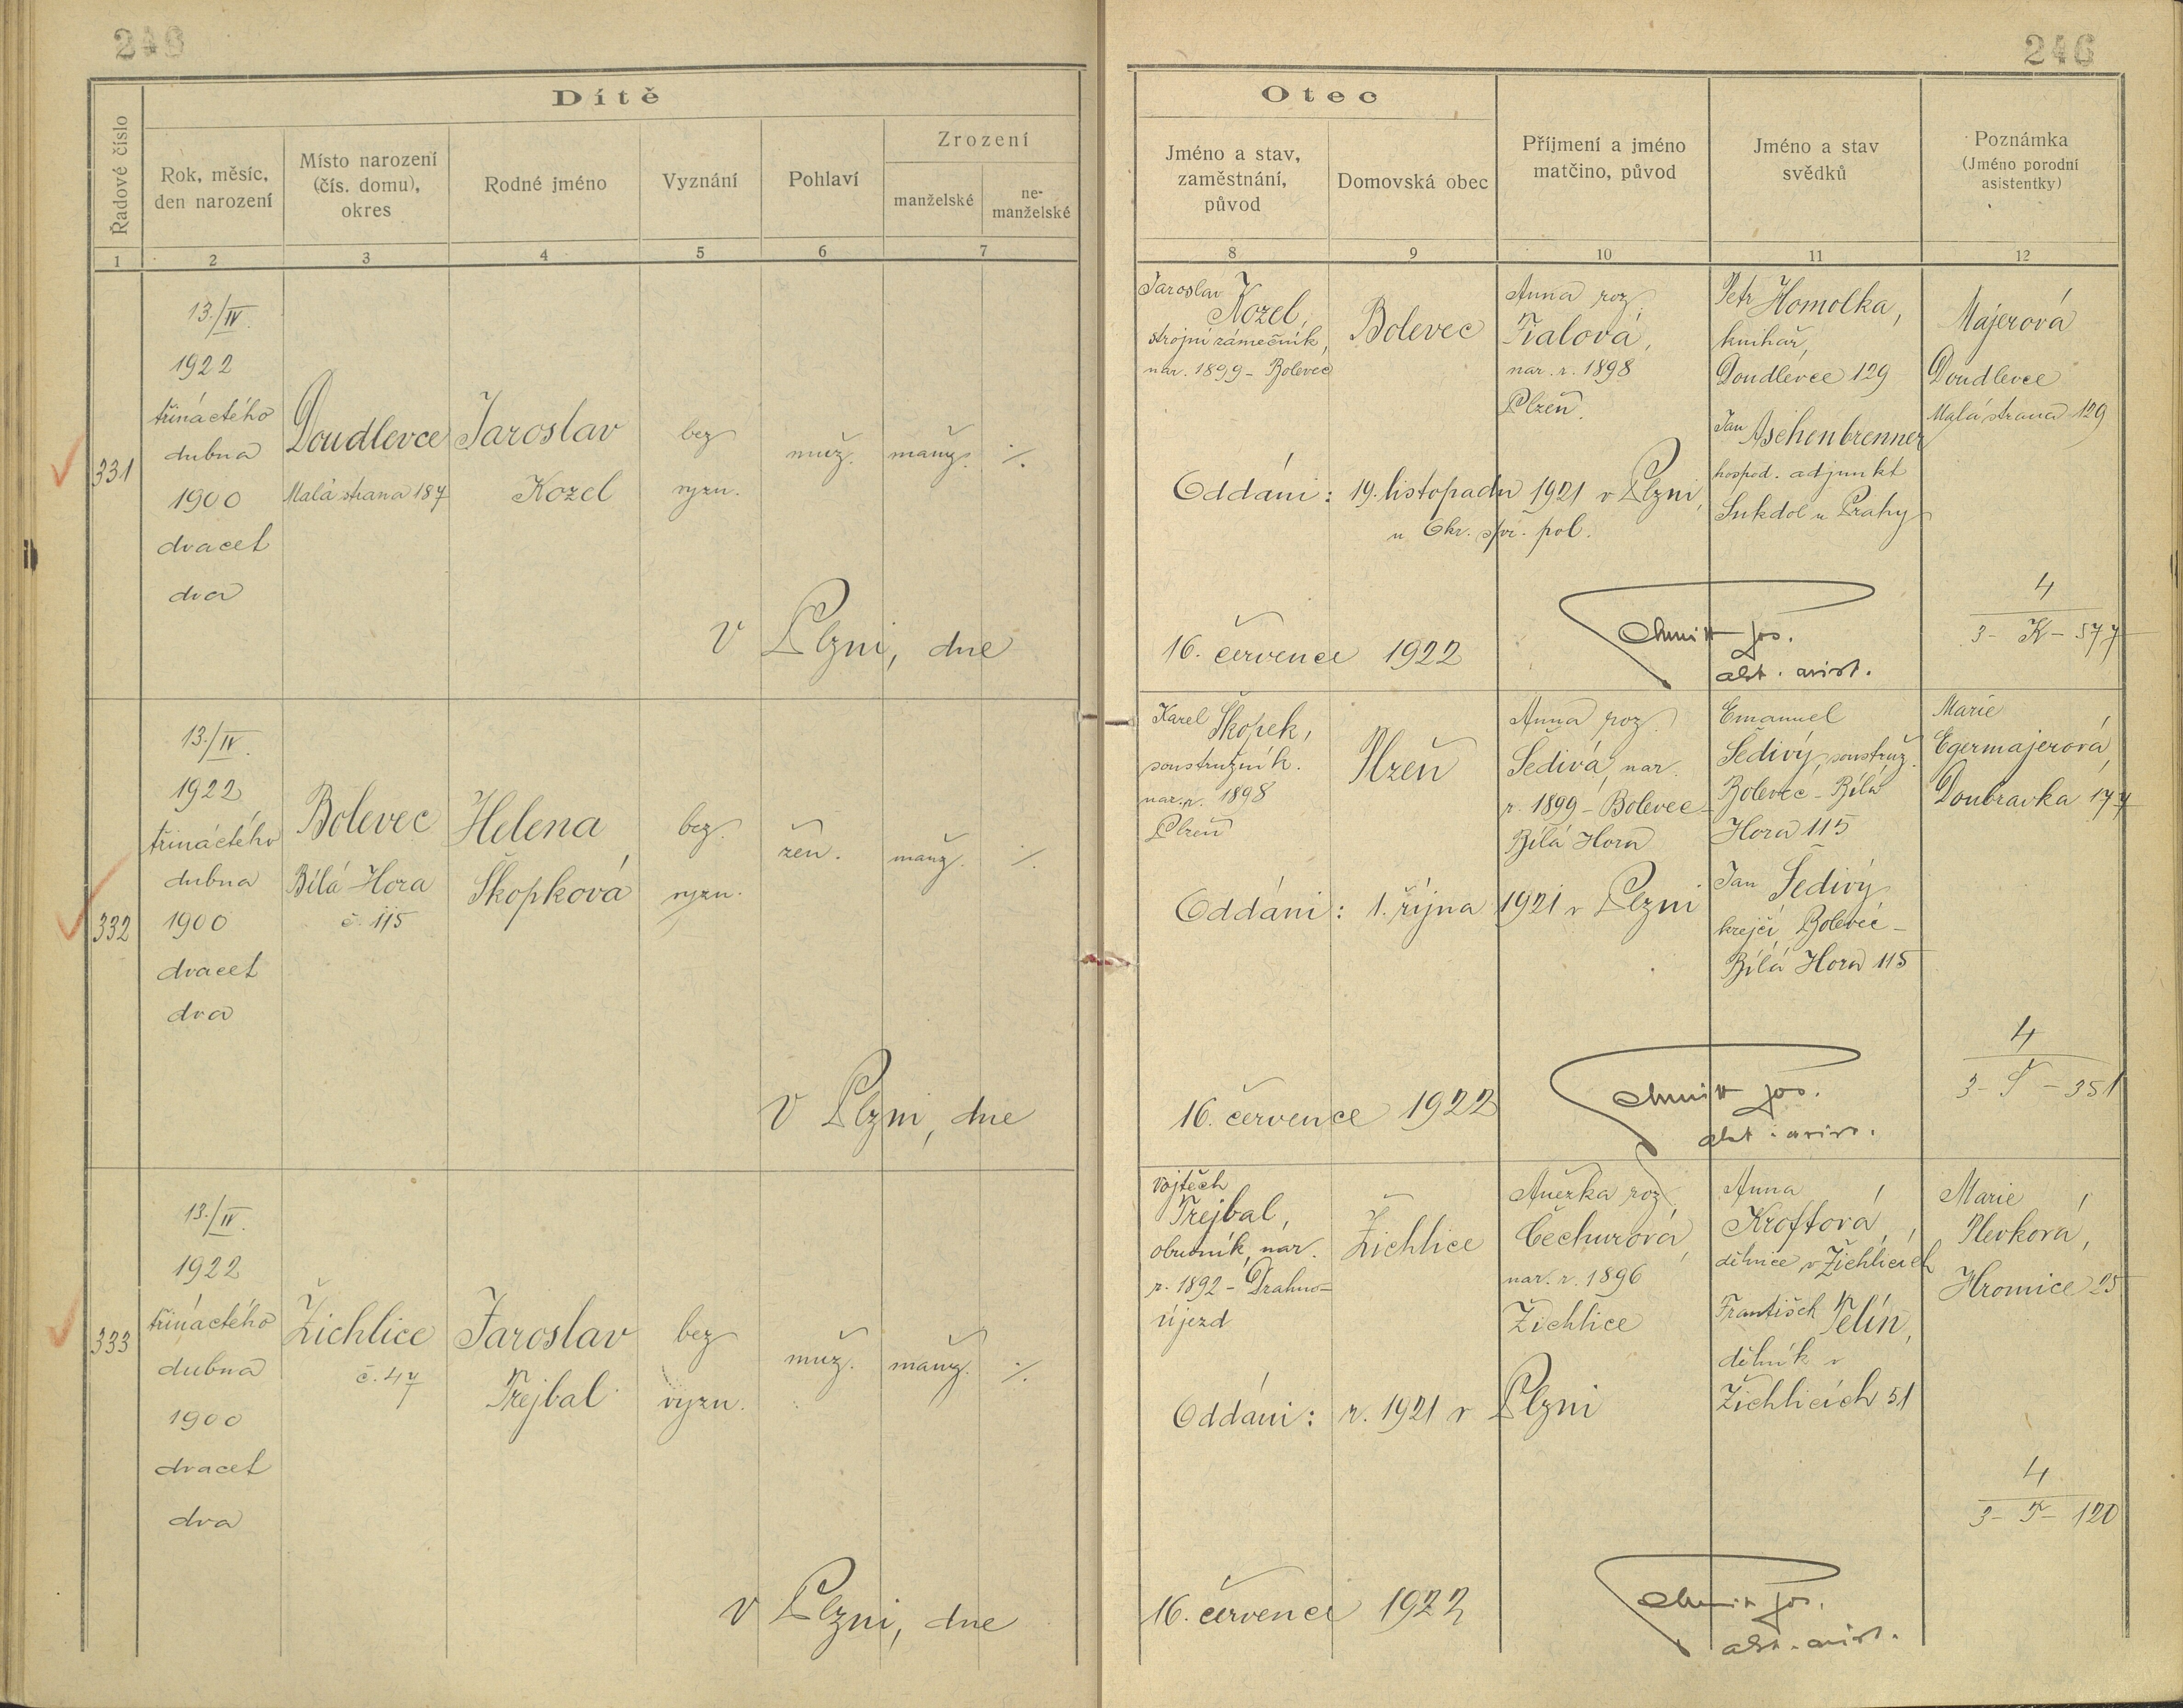 246
246
Dítě
Otec
Řadové číslo
Rok, měsíc,
den narození
Místo narození
(čís. domu),
okres
Rodné jméno
Vyznání
Pohlaví
Zrození
manželské
ne-
manželské
Jméno a stav,
zaměstnání,
původ
Domovská obec
Příjmení a jméno
matčino, původ
Jméno a stav
svědků
Poznámka
(Jméno porodní
asistentky)
1 2 3 4 5 6 7
8 9 10 11 12
331
13./IV.
1922
třináctého
dubna
1900
dvacet
dva
Doudlevce
Malá strana 187
Jaroslav
Kozel
bez
vyzn.
muž.
manž.
·/.
Jaroslav
Kozel,
strojní zámečník,
nar. 1899 - Bolevec
Bolevec
Anna roz.
Fialová,
nar. r. 1898
Plzeň.
Petr Homolka,
knihař,
Doudlevce 129
Jan Aschenbrenner
hospod. adjunkt
Sukdol u Prahy
Majerová
Doudlevce
Malá strana 129
Oddáni: 19. listopadu 1921 v Plzni,
u Okr. spr. pol.
V Plzni, dne
16. července 1922
4
3 - K - 577
332
13./IV.
1922
třináctého
dubna
1900
dvacet
dva
Bolevec
Bílá Hora
č. 115
Helena
Škopková
bez
vyzn.
žen.
manž.
·/.
Karel Škopek,
soustružník.
nar. r. 1898
Plzeň
Plzeň
Anna roz.
Šedivá, nar.
r. 1899 - Bolevec -
Bílá Hora
Emanuel
Šedivý, soustruž.
Bolevec - Bílá
Hora 115
Jan Šedivý
krejčí Bolevec -
Bílá Hora 115
Marie
Egermajerová,
Doubravka 177
Oddáni: 1. října 1921 v Plzni
V Plzni, dne
16. července 1922
4
3 - Š - 351
333
13./IV.
1922
třináctého
dubna
1900
dvacet
dva
Žichlice
č. 47
Jaroslav
Trejbal
bez
vyzn.
muž.
manž.
·/.
Vojtěch
Trejbal,
obuvník, nar.
r. 1892 - Drahno-
újezd
Žichlice
Anežka roz.
Čechurová,
nar. r. 1896
Žichlice
Anna
Kroftová,
dělnice v Žichlicích
František Jelín,
dělník v
Žichlicích 51
Marie
Plevková,
Hromice 25
Oddáni: r. 1921 v Plzni
V Plzni, dne
16. července 1922
4
3 - T - 120